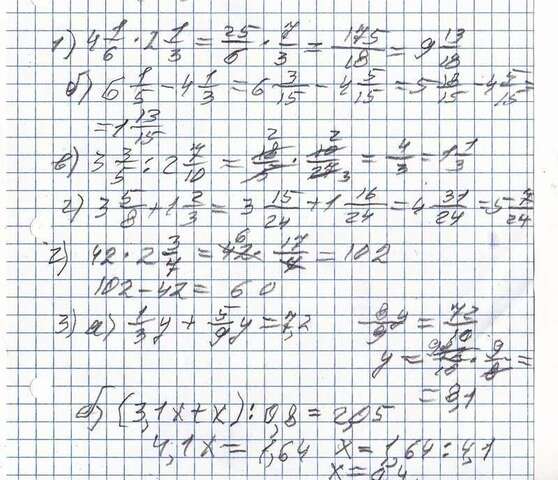 1) 4 1/6 · 2 1/3 = 25/6 · 7/3 = 175/18 = 9 13/18
б) 6 1/5 - 4 1/3 = 6 3/15 - 4 5/15 = 5 18/15 - 4 5/15 =
= 1 13/15
в) 3 3/5 : 2 7/10 = 18/5 · 10/27 = 4/3 = 1 1/3
г) 3 5/8 + 1 2/3 = 3 15/24 + 1 16/24 = 4 31/24 = 5 7/24
2) 42 · 2 3/7 = 42 · 17/7 = 102
102 - 42 = 60
3) а) 1/3 y + 5/9 y = 7,2 8/9 y = 72/10
y = 72/10 · 9/8 =
= 8,1
б) (3,1x + x) : 0,8 = 2,05
4,1x = 1,64 x = 1,64 : 4,1
x = 0,4